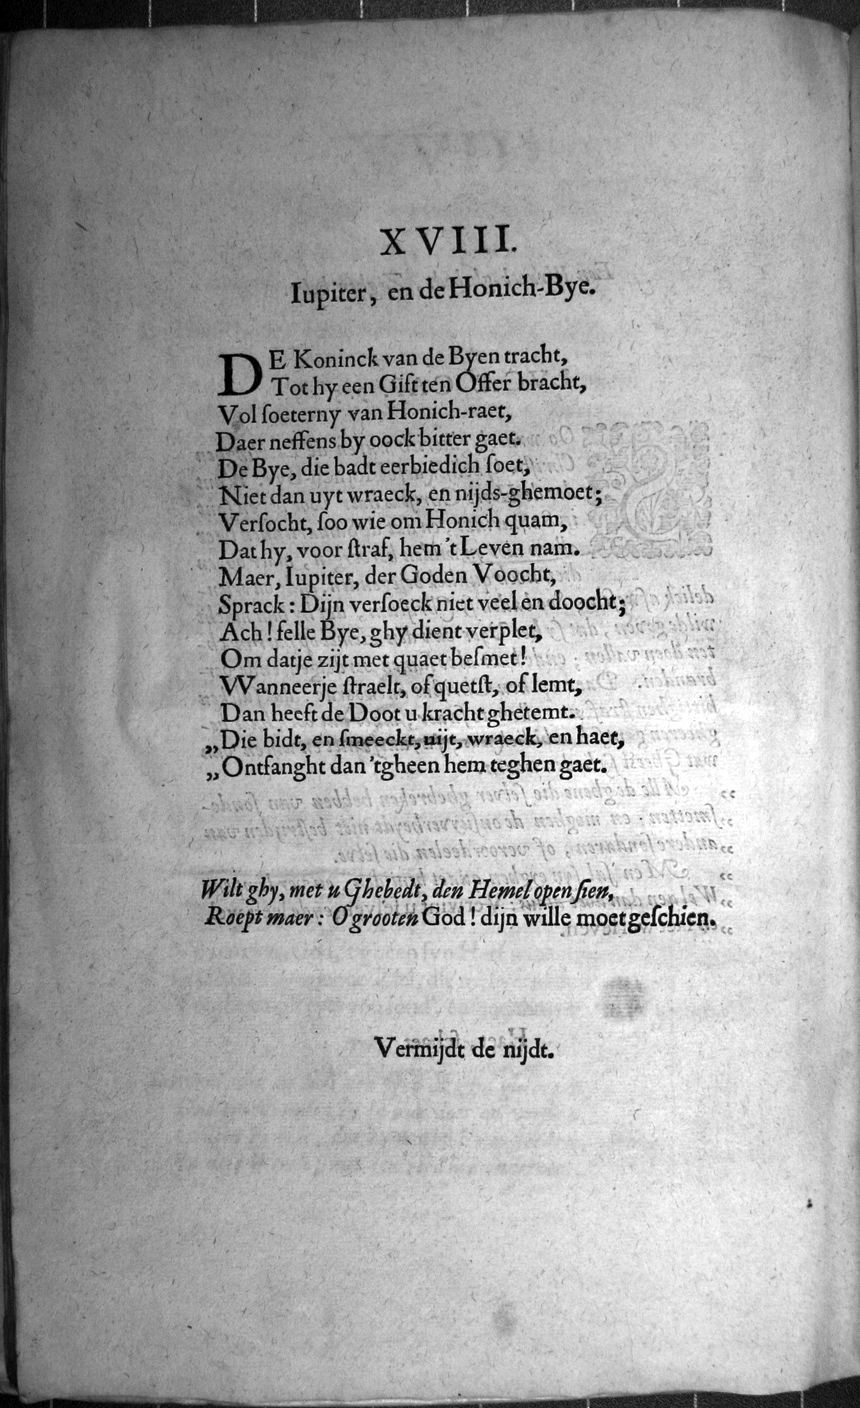 XVIII.
Iupiter, en de Honich-Bye.
DE Koninck van de Byen tracht,
Tot hy een Gift ten Offer bracht,
Vol ſoeterny van Honich-raet,
Daer neffens by oock bitter gaet.
De Bye, die badt eerbiedich ſoet,
Niet dan uyt wraeck, en nijds-ghemoet;
Verſocht, ſoo wie om Honich quam,
Dat hy, voor ſtraf, hem 't Leven nam.
Maer, Iupiter, der Goden Voocht,
Sprack: Dijn verſoeck niet veel en doocht;
Ach! felle Bye, ghy dient verplet,
Om datje zijt met quaet beſmet!
VVanneerje ſtraelt, of quetſt, of lemt,
Dan heeft de Doot u kracht ghetemt.
„Die bidt, en ſmeeckt, uijt, wraeck, en haet,
„Ontfanght dan 'tgheen hem teghen gaet.
Wilt ghy, met u Ghebedt, den Hemel open ſien,
Roept maer: O grooten God! dijn wille moet geſchien.
Vermijdt de nijdt.